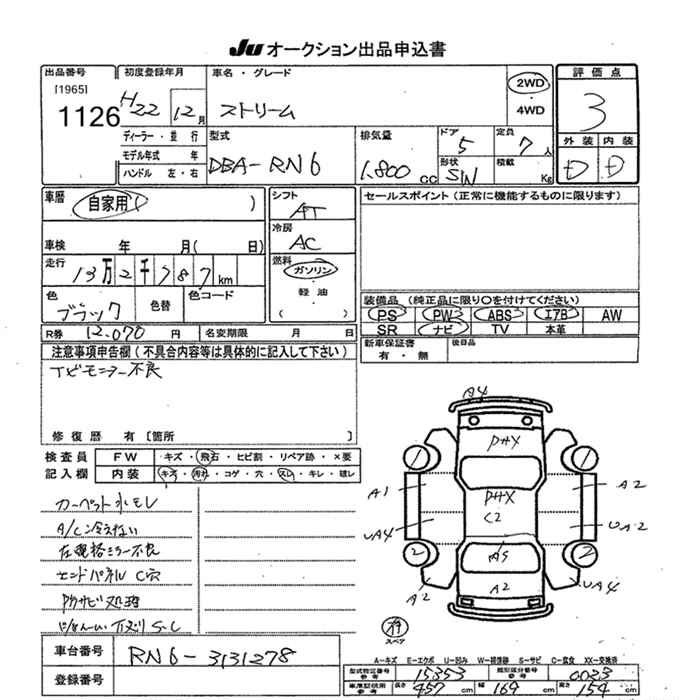 Ju オークション出品申込書
出品番号 初度登録年月 車名・グレード 2WD・4WD 評価点
[1965]
1126 H22 12月 ストリーム 3
ディーラー・並行 型式 排気量 ドア 定員 外装 内装
モデル年式 年 DBA-RN6 1,800cc 5 7人 D D
ハンドル 左・右 形状 S/W 積載 Kg
車歴 自家用( ) シフト AT セールスポイント(正常に機能するものに限ります)
車検 年 月( 日) 冷房 AC
走行 13万2千787km 燃料 ガソリン・軽油・( )
色 ブラック 色替 色コード 装備品(純正品に限り○を付けてください)
PS PW ABS エアB AW
R券 12,070円 名変期限 月 日 SR ナビ TV 本革
注意事項申告欄(不具合内容等は具体的に記入して下さい) 新車保証書 有・無 後日品
TVモニター不良
修復歴 有 〔箇所 〕
検査員 FW ・キズ・飛石・ヒビ割・リペア跡・×要
記入欄 内装 ・キズ・汚れ・コゲ・穴・スレ・キレ・破レ
カーペット水モレ
A/C冷えない
左規格ミラー不良
エンドパネルC穴
防サビ処理
A4
PHX
1 1
A1 A2
PHX
C2
UA4 UA2
2 2
A5
A2
A2 UA4
スペア
車台番号 RN6-3131278
登録番号
A-キズ E-エクボ U-凹み W-補修跡 S-サビ C-腐食 XX-交換済
型式指定番号 15853 類別区分番号 0023
長さ 457cm 幅 169cm 高さ 154cm